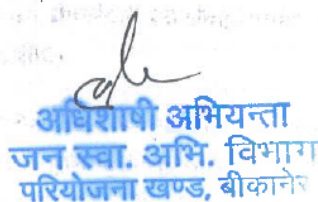 अधिशाषी अभियन्ता
जन स्वा. अभि. विभाग
परियोजना खण्ड, बीकानेर